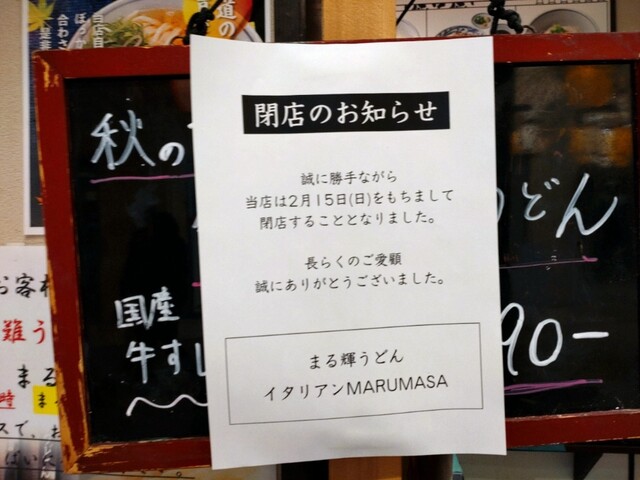 閉店のお知らせ
誠に勝手ながら
当店は2月15日(日)をもちまして
閉店することとなりました。
長らくのご愛顧
誠にありがとうございました。
まる輝うどん
イタリアンMARUMASA
秋の
どん
国産
牛す
90-
お客様
難う
まる
時